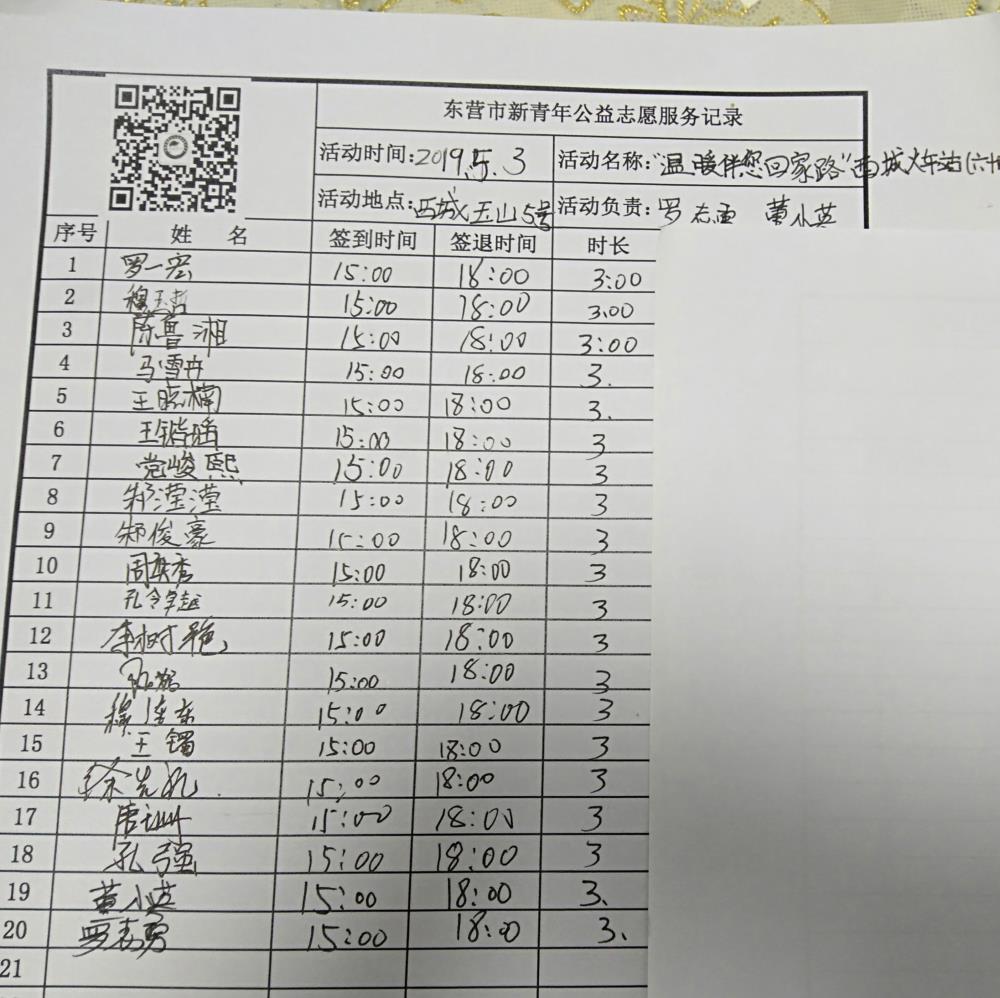 东营市新青年公益志愿服务记录
活动时间:2019.5.3 活动名称:"温暖伴您回家路"西城火车站(六十
活动地点:西城玉山5号 活动负责: 罗志勇 董小英
序号 姓 名 签到时间 签退时间 时长
1 罗一宏 15:00 18:00 3:00
2 15:00 18:00 3.00
3 陈鲁湘 15:00 18:00 3:00
4 马雪卉 15:00 18:00 3.
5 王晓楠 15:00 18:00 3.
6 15:00 18:00 3
7 党峻熙 15:00 18:00 3
8 15:00 18:00 3
9 15:00 18:00 3
10 15:00 18:00 3
11 15:00 18:00 3
12 李树艳 15:00 18:00 3
13 15:00 18:00 3
14 15:00 18:00 3
15 王镯 15:00 18:00 3
16 徐光礼 15:00 18:00 3
17 15:00 18:00 3
18 孔强 15:00 18:00 3
19 董小英 15:00 18:00 3.
20 罗志勇 15:00 18:00 3.
21